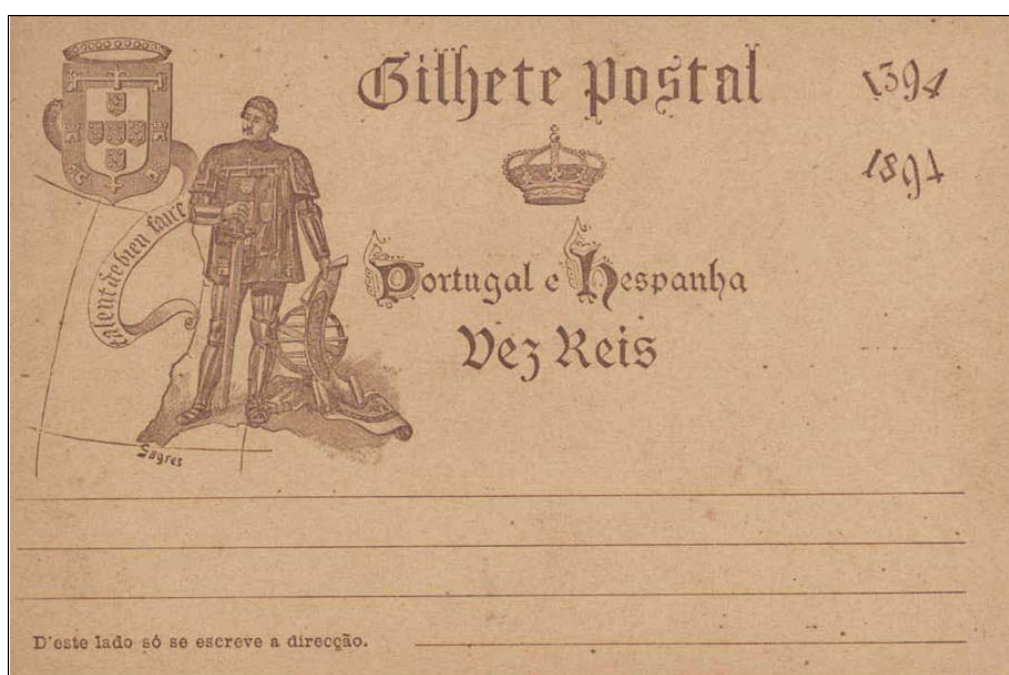 Bilhete Postal
1394
1894
talent de bien faire
Portugal e Hespanha
Dez Reis
Sagres
D'este lado só se escreve a direcção.